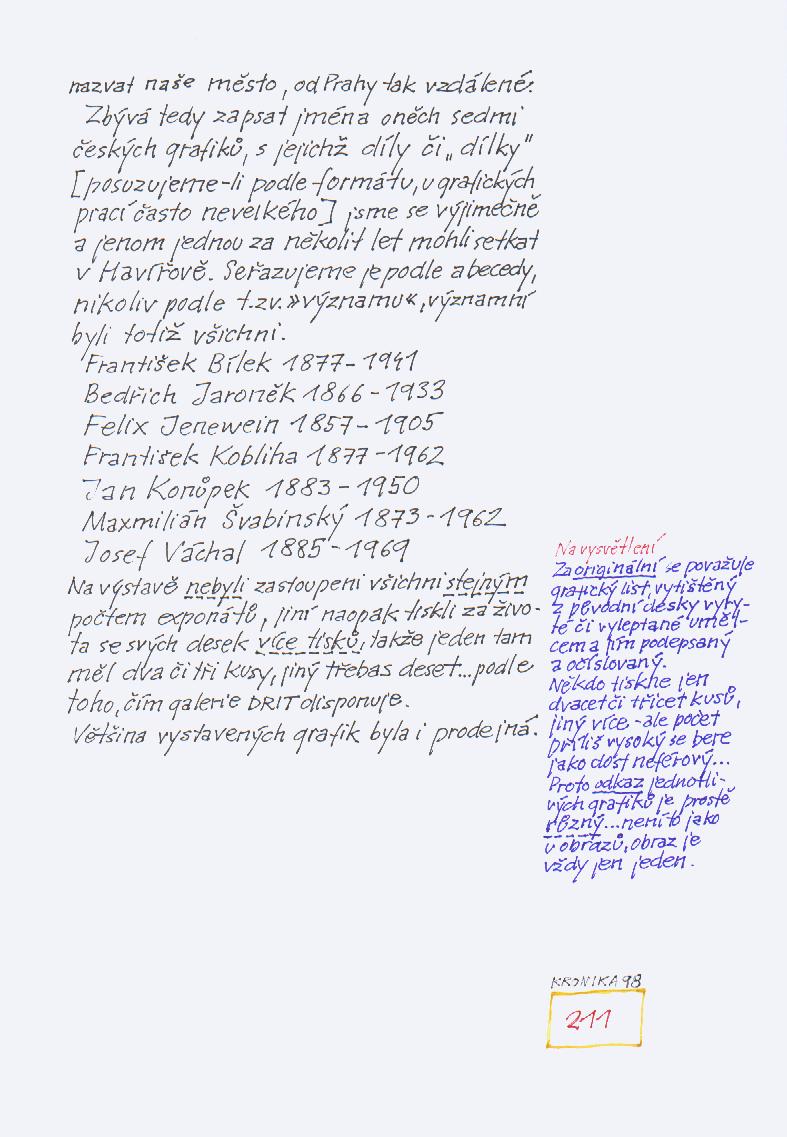 nazvat naše město, od Prahy tak vzdálené.
Zbývá tedy zapsat jména oněch sedmi
českých grafiků, s jejichž díly či „dílky“
[posuzujeme-li podle formátu, u grafických
prací často nevelkého] jsme se výjimečně
a jenom jednou za několit let mohli setkat
v Havířově. Seřazujeme je podle abecedy,
nikoliv podle t.zv. »významu«, významní
byli totiž všichni.
František Bílek 1877-1941
Bedřich Jaroněk 1866-1933
Felix Jenewein 1857-1905
František Kobliha 1877-1962
Jan Konůpek 1883-1950
Maxmilián Švabinský 1873-1962
Josef Váchal 1885-1969
Na výstavě nebyli zastoupeni všichni stejným
počtem exponátů, jiní naopak tiskli za živo-
ta se svých desek více tisků, takže jeden tam
měl dva či tři kusy, jiný třebas deset...podle
toho, čím galerie DRIT disponuje.
Většina vystavených grafik byla i prodejná.
Na vysvětlení
Za originální se považuje
grafický list, vytištěný
z původní desky vyry-
té či vyleptané uměl-
cem a jím podepsaný
a očíslovaný.
Někdo tiskne jen
dvacet či třicet kusů,
jiný více - ale počet
příliš vysoký se bere
jako dost neférový...
Proto odkaz jednotli-
vých grafiků je prostě
různý...není to jako
u obrazů, obraz je
vždy jen jeden.
KRONIKA 98
211